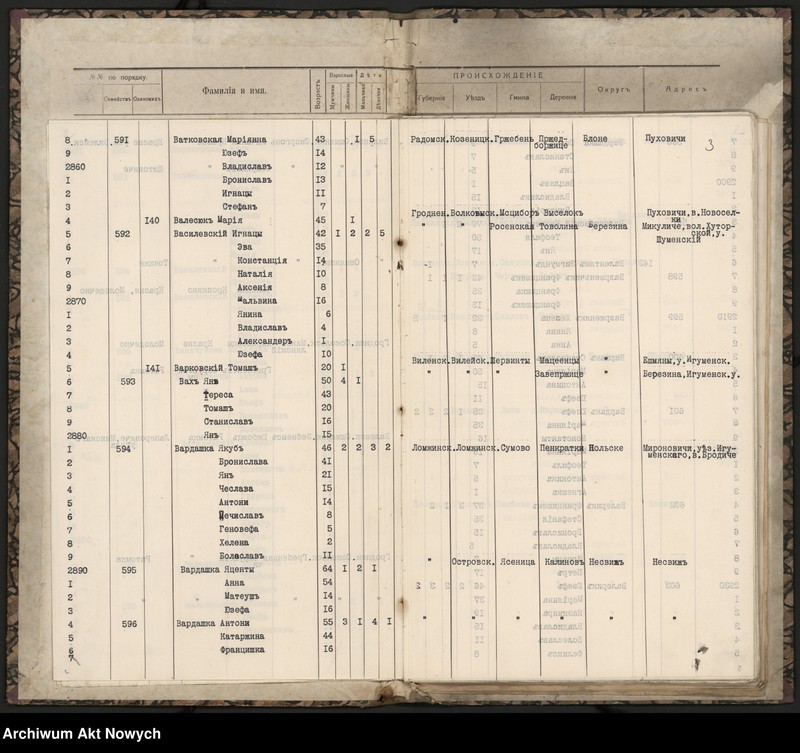 №№ по порядку. Фамилія и имя. Возрастъ Взрослые Дѣти ПРОИСХОЖДЕНІЕ Округъ Адресъ
Семействъ Одинокихъ Мужчины Женщины Мальчики Дѣвочки Губернія Уѣздъ Гмина Деревня
3
8 591 Ватковская Маріянна 43 1 5 Радомск. Козеницк. Гржебень Пржед- Блоне Пуховичи
боржице
9 Юзефъ 14
2860 " Владиславъ " 12
1 Брониславъ 13
2 Игнацы 11
3 Стефанъ 7
4 140 Валесюкъ Марія 45 1 Гроднен. Волковыск. Мсциборъ Выселокъ Пуховичи, в.Новосел-
ки
5 592 Василевскій Игнацы 42 1 2 2 5 " " Росенская Товолина Березина Микуличе, вол.Хутор-
ской, у.
Шуменскій
6 Эва 35
7 " Констанція " 14
8 Наталія 10
9 Аксенія 8
2870 Мальвина 16
1 Янина 6
2 Владиславъ 4
3 Александеръ 1
4 Юзефа 10
5 141 Варковскій Томашъ 20 1 Виленск. Вилейск. Шервинты Мацеенцы " Ешмяны, у.Игуменск.
6 593 Вахъ Янъ 50 4 1 " " " Завепржице " Березина, Игуменск.у.
7 Тереса 43
8 Томашъ 20
9 Станиславъ 16
2880 Янъ 15
1 594 Вардашка Якубъ 46 2 2 3 2 Ломжинск. Ломжинск. Сумово Пенкратки Нольске Мироновичи, уѣз.Игу-
менскаго, в.Бродиче
2 Бронислава 41
3 Янъ 21
4 Чеслава 15
5 Антони 14
6 Мечиславъ 8
7 Геновефа 5
8 Хелена 2
9 Болеславъ 11
2890 595 Вардашка Яценты 64 1 2 1 " Островск. Ясеница Калиновъ Несвижъ Несвижъ
1 Анна 54
2 " Матеушъ 14
3 Юзефа 16
4 596 Вардашка Антони 55 3 1 4 1 " " " " " "
5 Катаржина 44
6 Францишка 16
7
Archiwum Akt Nowych